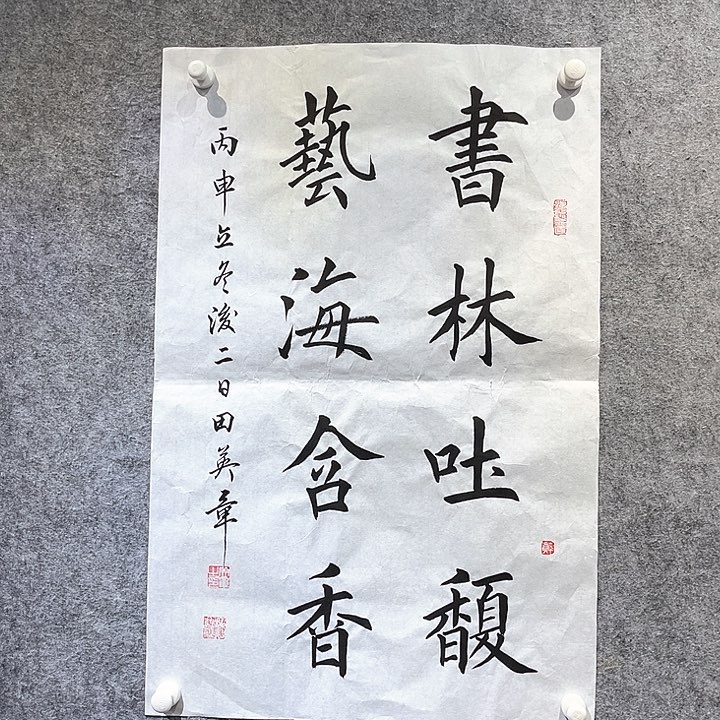 書林吐馥
藝海含香
丙申立冬後二日田英章